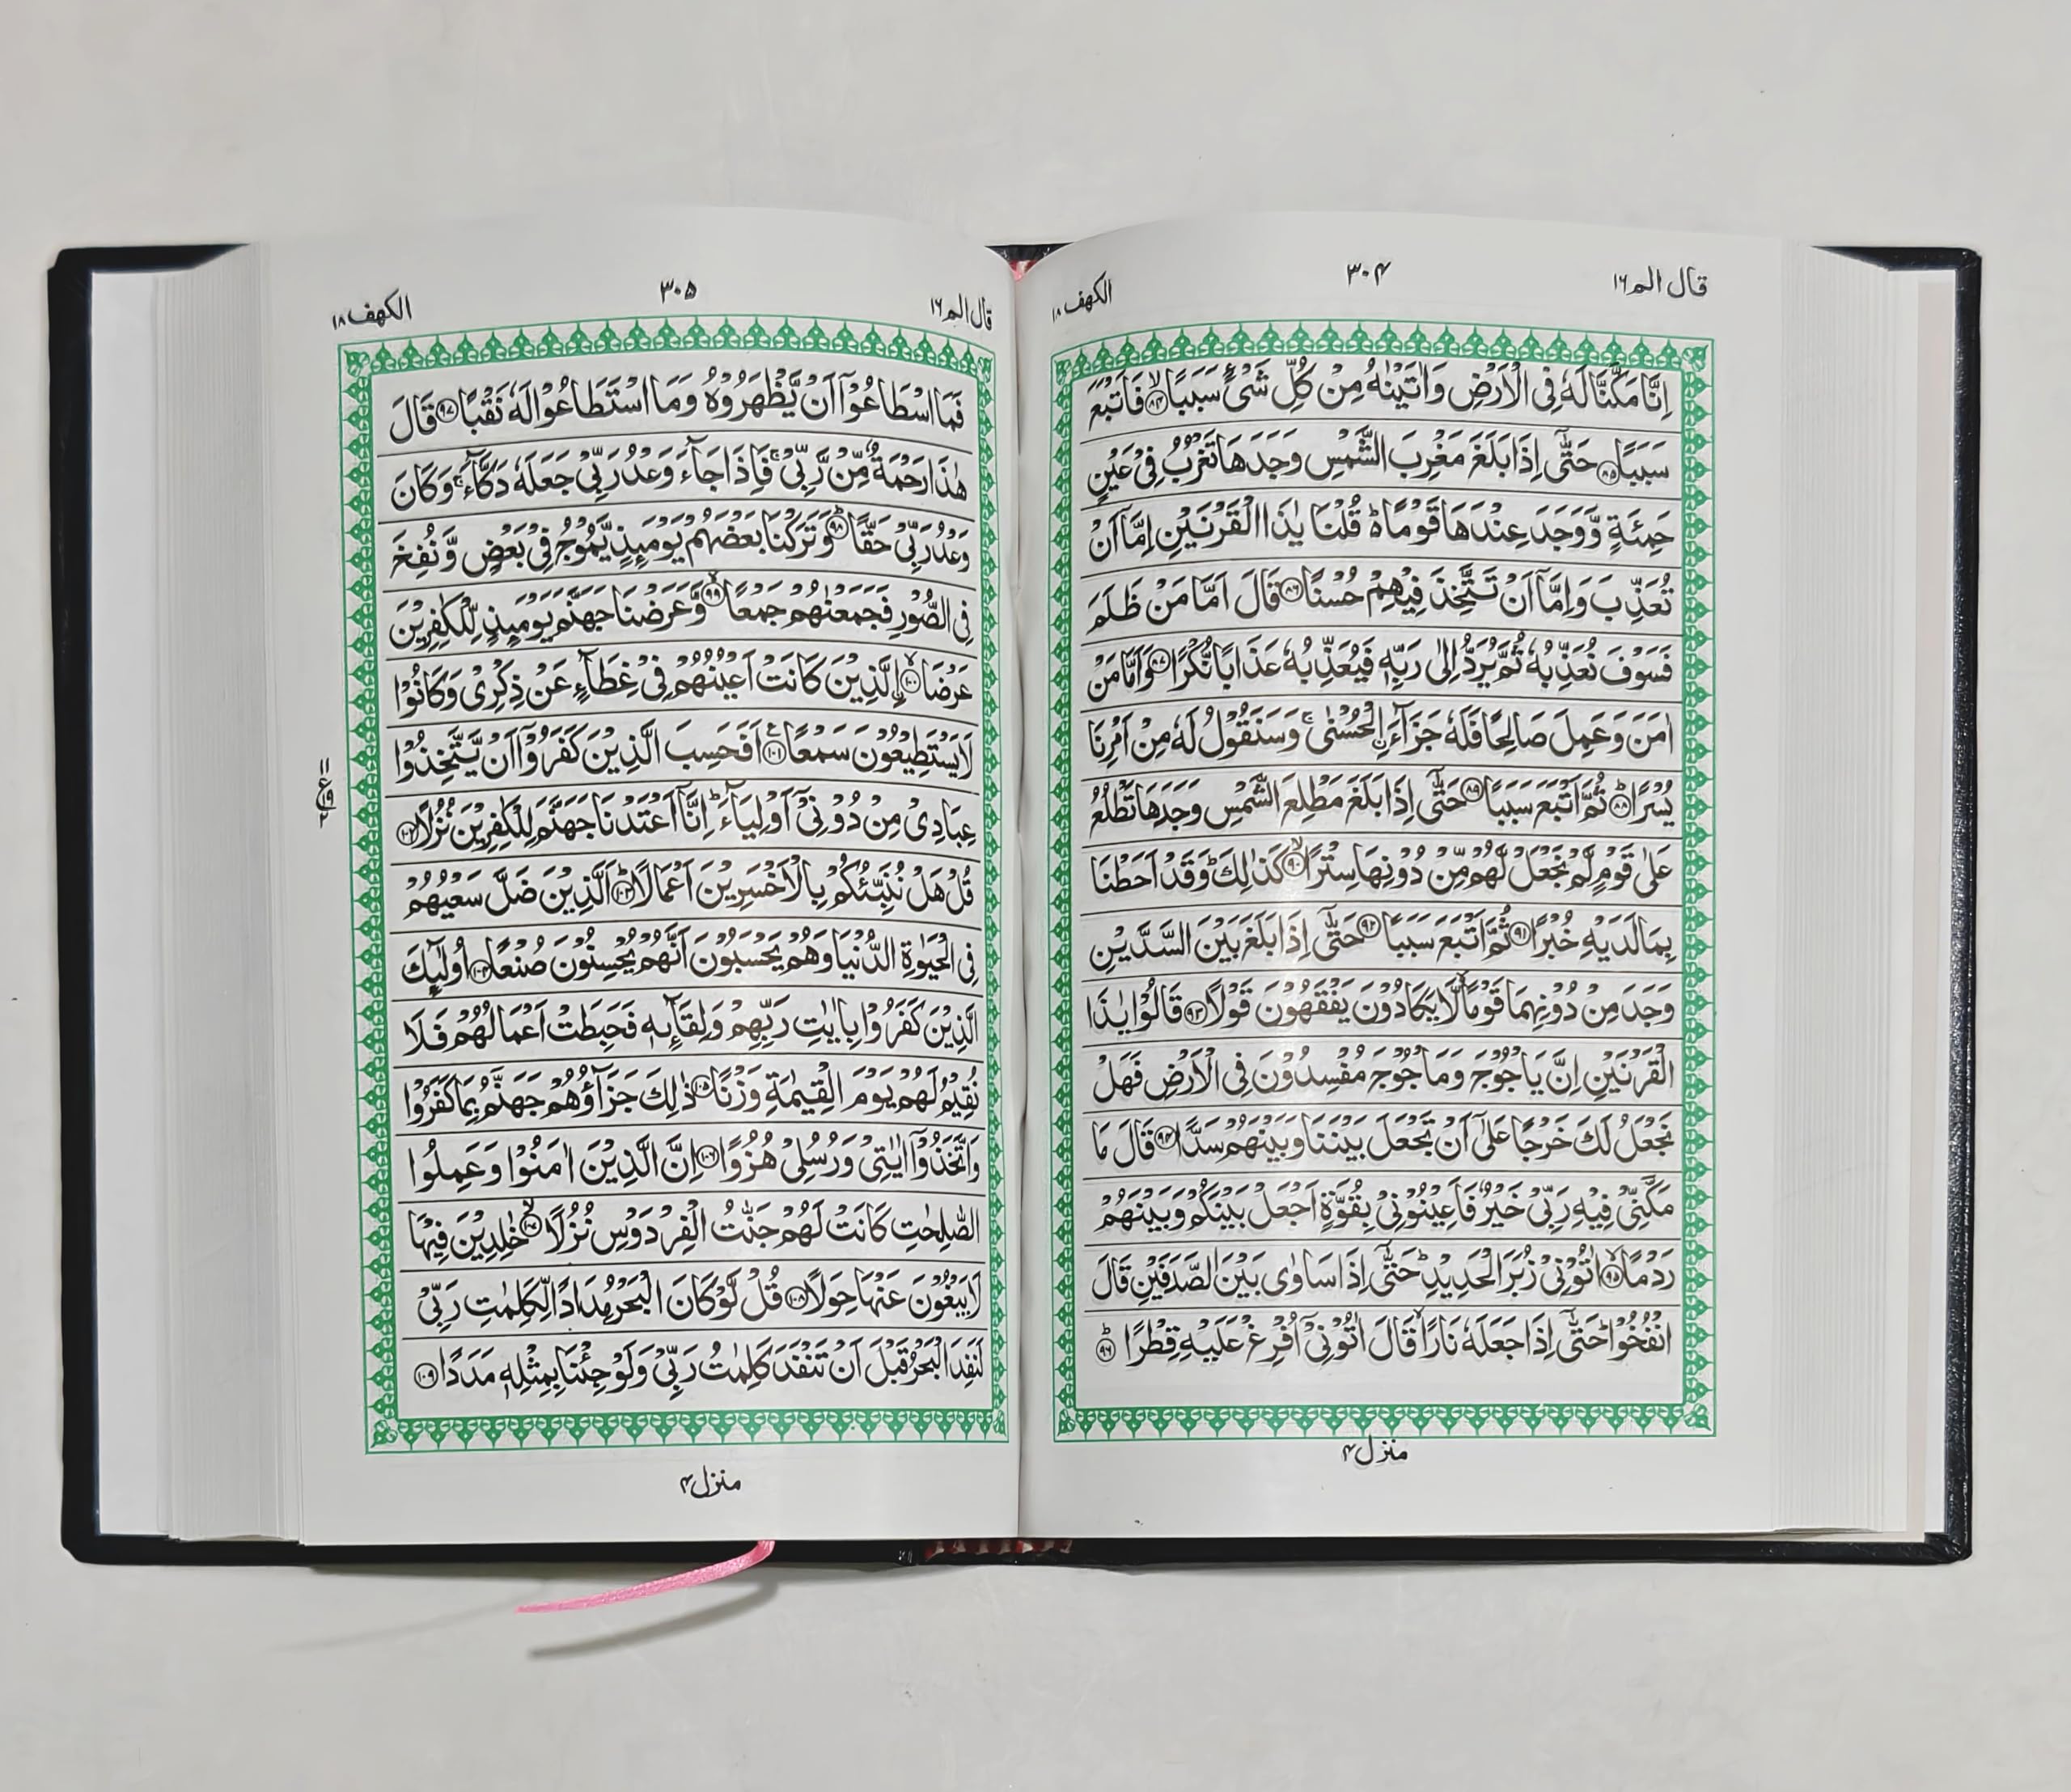 قال الم ١٦
٣٠۴
الكهف ١٨
اِنَّا مَكَّنَّا لَهٗ فِی الْاَرْضِ وَاٰتَیْنٰهُ مِنْ كُلِّ شَیْءٍ سَبَبًا ۙ﴿۸۴﴾ فَاَتْبَعَ
سَبَبًا ﴿۸۵﴾ حَتّٰۤی اِذَا بَلَغَ مَغْرِبَ الشَّمْسِ وَجَدَهَا تَغْرُبُ فِیْ عَیْنٍ
حَمِئَةٍ وَّوَجَدَ عِنْدَهَا قَوْمًا ؕ۬ قُلْنَا یٰذَا الْقَرْنَیْنِ اِمَّاۤ اَنْ
تُعَذِّبَ وَاِمَّاۤ اَنْ تَتَّخِذَ فِیْهِمْ حُسْنًا ﴿۸۶﴾ قَالَ اَمَّا مَنْ ظَلَمَ
فَسَوْفَ نُعَذِّبُهٗ ثُمَّ یُرَدُّ اِلٰی رَبِّهٖ فَیُعَذِّبُهٗ عَذَابًا نُّكْرًا ﴿۸۷﴾ وَاَمَّا مَنْ
اٰمَنَ وَعَمِلَ صَالِحًا فَلَهٗ جَزَآءَ ِۨالْحُسْنٰی ۚ وَسَنَقُوْلُ لَهٗ مِنْ اَمْرِنَا
یُسْرًا ؕ﴿۸۸﴾ ثُمَّ اَتْبَعَ سَبَبًا ﴿۸۹﴾ حَتّٰۤی اِذَا بَلَغَ مَطْلِعَ الشَّمْسِ وَجَدَهَا تَطْلُعُ
عَلٰی قَوْمٍ لَّمْ نَجْعَلْ لَّهُمْ مِّنْ دُوْنِهَا سِتْرًا ۙ﴿۹۰﴾ كَذٰلِكَ ؕ وَقَدْ اَحَطْنَا
بِمَا لَدَیْهِ خُبْرًا ﴿۹۱﴾ ثُمَّ اَتْبَعَ سَبَبًا ﴿۹۲﴾ حَتّٰۤی اِذَا بَلَغَ بَیْنَ السَّدَّیْنِ
وَجَدَ مِنْ دُوْنِهِمَا قَوْمًا ۙ لَّا یَكَادُوْنَ یَفْقَهُوْنَ قَوْلًا ﴿۹۳﴾ قَالُوْا یٰذَا
الْقَرْنَیْنِ اِنَّ یَاْجُوْجَ وَمَاْجُوْجَ مُفْسِدُوْنَ فِی الْاَرْضِ فَهَلْ
نَجْعَلُ لَكَ خَرْجًا عَلٰۤی اَنْ تَجْعَلَ بَیْنَنَا وَبَیْنَهُمْ سَدًّا ﴿۹۴﴾ قَالَ مَا
مَكَّنِّیْ فِیْهِ رَبِّیْ خَیْرٌ فَاَعِیْنُوْنِیْ بِقُوَّةٍ اَجْعَلْ بَیْنَكُمْ وَبَیْنَهُمْ
رَدْمًا ۙ﴿۹۵﴾ اٰتُوْنِیْ زُبَرَ الْحَدِیْدِ ؕ حَتّٰۤی اِذَا سَاوٰی بَیْنَ الصَّدَفَیْنِ قَالَ
انْفُخُوْا ؕ حَتّٰۤی اِذَا جَعَلَهٗ نَارًا ۙ قَالَ اٰتُوْنِیْۤ اُفْرِغْ عَلَیْهِ قِطْرًا ؕ﴿۹۶﴾
منزل ۴
قال الم ١٦
٣٠۵
الكهف ١٨
فَمَا اسْطَاعُوْۤا اَنْ یَّظْهَرُوْهُ وَمَا اسْتَطَاعُوْا لَهٗ نَقْبًا ﴿۹۷﴾ قَالَ
هٰذَا رَحْمَةٌ مِّنْ رَّبِّیْ ۚ فَاِذَا جَآءَ وَعْدُ رَبِّیْ جَعَلَهٗ دَكَّآءَ ۚ وَكَانَ
وَعْدُ رَبِّیْ حَقًّا ؕ﴿۹۸﴾ وَتَرَكْنَا بَعْضَهُمْ یَوْمَئِذٍ یَّمُوْجُ فِیْ بَعْضٍ وَّنُفِخَ
فِی الصُّوْرِ فَجَمَعْنٰهُمْ جَمْعًا ۙ﴿۹۹﴾ وَّعَرَضْنَا جَهَنَّمَ یَوْمَئِذٍ لِّلْكٰفِرِیْنَ
عَرْضَا ۙ﴿۱۰۰﴾ ِۨالَّذِیْنَ كَانَتْ اَعْیُنُهُمْ فِیْ غِطَآءٍ عَنْ ذِكْرِیْ وَكَانُوْا
لَا یَسْتَطِیْعُوْنَ سَمْعًا ﴿۱۰۱﴾ اَفَحَسِبَ الَّذِیْنَ كَفَرُوْۤا اَنْ یَّتَّخِذُوْا
عِبَادِیْ مِنْ دُوْنِیْۤ اَوْلِیَآءَ ؕ اِنَّاۤ اَعْتَدْنَا جَهَنَّمَ لِلْكٰفِرِیْنَ نُزُلًا ﴿۱۰۲﴾
قُلْ هَلْ نُنَبِّئُكُمْ بِالْاَخْسَرِیْنَ اَعْمَالًا ؕ﴿۱۰۳﴾ اَلَّذِیْنَ ضَلَّ سَعْیُهُمْ
فِی الْحَیٰوةِ الدُّنْیَا وَهُمْ یَحْسَبُوْنَ اَنَّهُمْ یُحْسِنُوْنَ صُنْعًا ﴿۱۰۴﴾ اُولٰٓئِكَ
الَّذِیْنَ كَفَرُوْا بِاٰیٰتِ رَبِّهِمْ وَلِقَآئِهٖ فَحَبِطَتْ اَعْمَالُهُمْ فَلَا
نُقِیْمُ لَهُمْ یَوْمَ الْقِیٰمَةِ وَزْنًا ﴿۱۰۵﴾ ذٰلِكَ جَزَآؤُهُمْ جَهَنَّمُ بِمَا كَفَرُوْا
وَاتَّخَذُوْۤا اٰیٰتِیْ وَرُسُلِیْ هُزُوًا ﴿۱۰۶﴾ اِنَّ الَّذِیْنَ اٰمَنُوْا وَعَمِلُوا
الصّٰلِحٰتِ كَانَتْ لَهُمْ جَنّٰتُ الْفِرْدَوْسِ نُزُلًا ۙ﴿۱۰۷﴾ خٰلِدِیْنَ فِیْهَا
لَا یَبْغُوْنَ عَنْهَا حِوَلًا ﴿۱۰۸﴾ قُلْ لَّوْ كَانَ الْبَحْرُ مِدَادًا لِّكَلِمٰتِ رَبِّیْ
لَنَفِدَ الْبَحْرُ قَبْلَ اَنْ تَنْفَدَ كَلِمٰتُ رَبِّیْ وَلَوْ جِئْنَا بِمِثْلِهٖ مَدَدًا ﴿۱۰۹﴾
۱۱
ع
۱۹
۲
منزل ۴